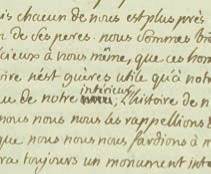 is chacun de nous est plus près
n de ses peres. nous sommes bi
cieux à nous même, que ces hom
oire n'est guères utile qu'à notr
ue de notre intérieur, l'histoire de n
nous nous nous les rappellions
que nous nous nous fardions à n
ra toujours un monument inte